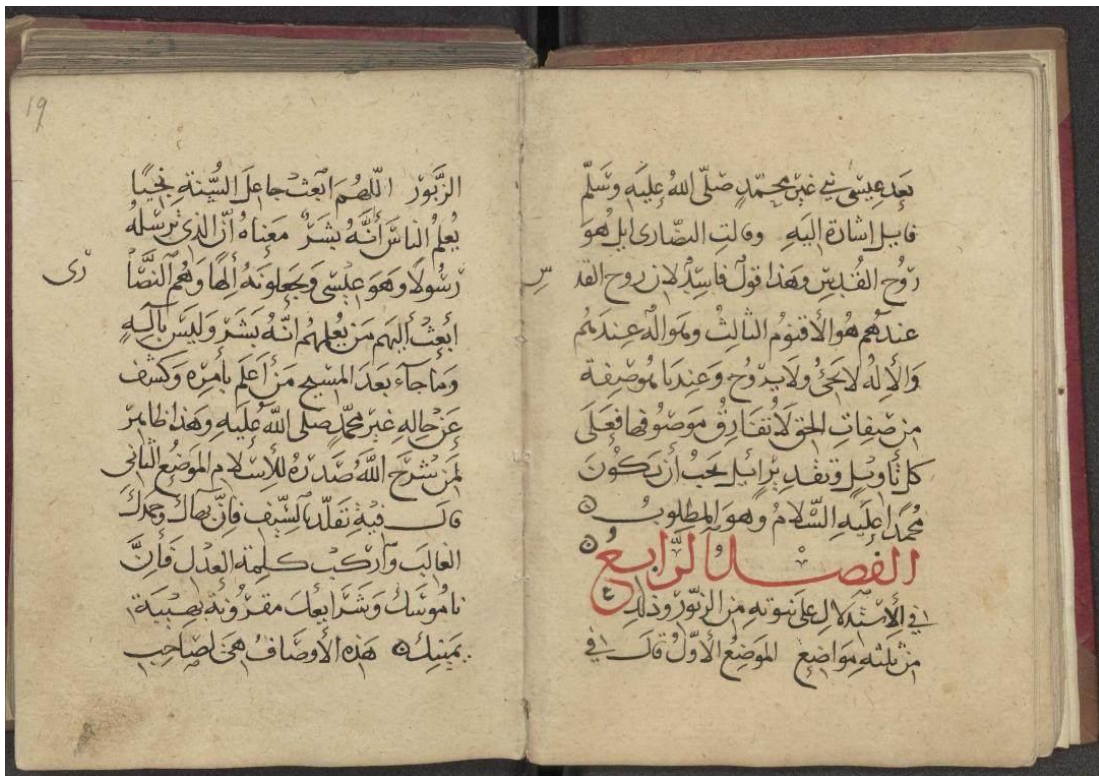 بعد عيسى في غير محمد صلى الله عليه وسلم
فايل اشارة اليه وقالت النصارى ايل هو
روح القدس وهذا قول فاسد لان روح القد س
عندهم هو الأقنوم الثالث وهو اله عندهم
والإله لا يجئ ولا يروح وعندنا هو صفة
من صفات الحق لا تفارق موصوفها فعلى
كل تأويل وتقدير ايل يجب أن يكون
محمدا عليه السلام وهو المطلوب
الفصل الرابع
في الاستدلال على نبوته من الزبور وذلك
من ثلثه مواضع الموضع الأول قال في
19
الزبور اللهم ابعث جاعل السنة
يعلم الناس أنه بشر معناه أن الذي ترسله
رسولا وهو عيسى ويجعلونه الها وهم النصا رى
ابعث اليهم من يعلمهم انه بشر وليس بآله
وما جآء بعد المسيح من أعلم بأمره وكشف
عن حاله غير محمد صلى الله عليه وهذا ظاهر
لمن شرح الله صدره للاسلام الموضع الثانى
قال فيه تقلد السيف فان بهاك وحمدك
الغالب وآركب كلمة العدل فان
ناموسك وشرايعك مقرونة بهيبة
يمينك هذه الأوصاف هى لصاحب